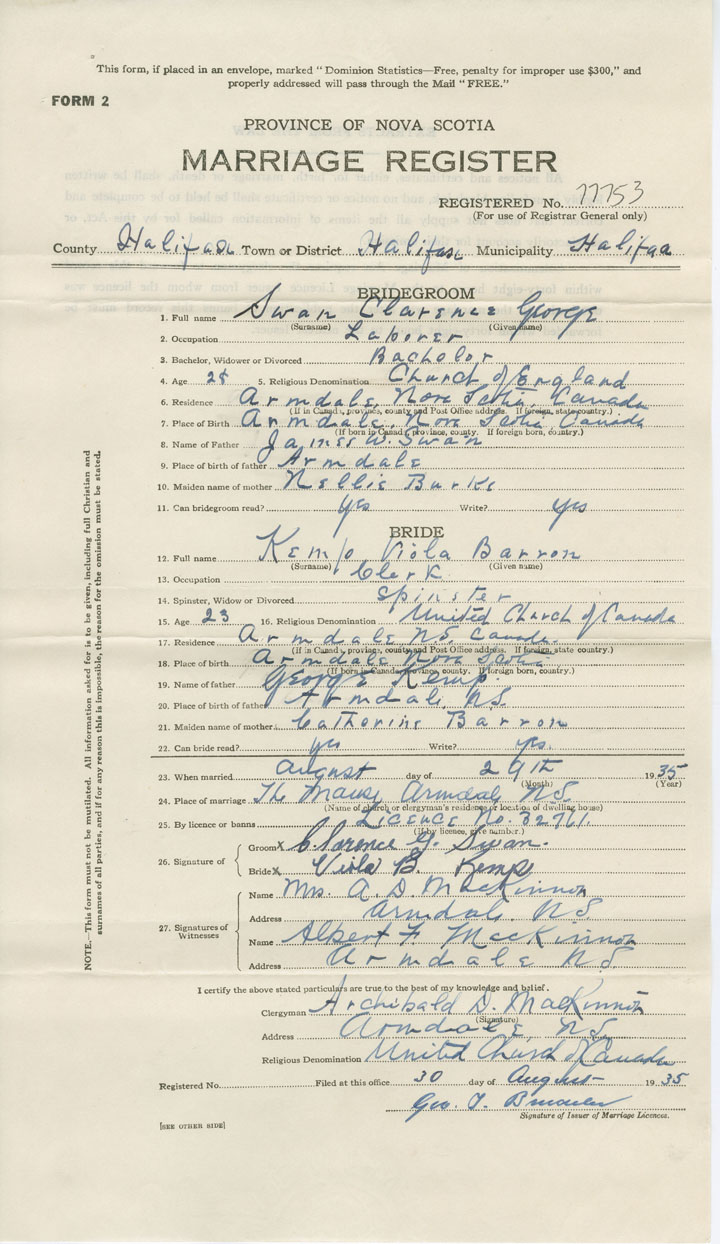 This form, if placed in an envelope, marked "Dominion Statistics—Free, penalty for improper use $300," and
properly addressed will pass through the Mail "FREE."
FORM 2
PROVINCE OF NOVA SCOTIA
MARRIAGE REGISTER
REGISTERED No. 77753
(For use of Registrar General only)
County Halifax Town or District Halifax Municipality Halifax
BRIDEGROOM
1. Full name Swan Clarence George
(Surname) (Given name)
2. Occupation Laborer
3. Bachelor, Widower or Divorced Bachelor
4. Age 28 5. Religious Denomination Church of England
6. Residence Armdale, Nova Scotia, Canada
(If in Canada, province, county and Post Office address. If foreign, state county.)
7. Place of Birth Armdale, Nova Scotia, Canada
(If born in Canada, province, county. If foreign born, country.)
8. Name of Father James W. Swan
9. Place of birth of father Armdale
10. Maiden name of mother Nellie Burke
11. Can bridegroom read? Yes Write? Yes
BRIDE
12. Full name Kemp Viola Barron
(Surname) (Given name)
13. Occupation Clerk
14. Spinster, Widow or Divorced Spinster
15. Age 23 16. Religious Denomination United Church of Canada
17. Residence Armdale N.S. Canada
(If in Canada, province, county and Post Office address. If foreign, state country.)
18. Place of birth Armdale Nova Scotia
(If born in Canada, province, county. If foreign born, country.)
19. Name of father George Kemp
20. Place of birth of father Armdale, N.S.
21. Maiden name of mother Catherine Barron
22. Can bride read? yes Write? yes
23. When married August day of 29th 1935
(Month) (Year)
24. Place of marriage The Manse Armdale N.S.
(Name of church or clergyman's residence or location of dwelling house)
25. By licence or banns Licence No. 32761.
(If by licence, give number.)
26. Signature of
Groom X Clarence G. Swan.
Bride X Viola B. Kemp
27. Signatures of Witnesses
Name Mrs. A. D. MacKinnon
Address Armdale. N.S
Name Albert F. MacKinnon
Address Armdale N.S.
I certify the above stated particulars are true to the best of my knowledge and belief.
Clergyman Archibald D. MacKinnon
(Signature)
Address Armdale, N.S.
Religious Denomination United Church of Canada
Registered No. Filed at this office 30 day of August 1935
Geo. T.
Signature of Issuer of Marriage Licences.
[SEE OTHER SIDE]
NOTE.—This form must not be mutilated. All information asked for is to be given, including full Christian and
surnames of all parties, and if for any reason this is impossible, the reason for the omission must be stated.